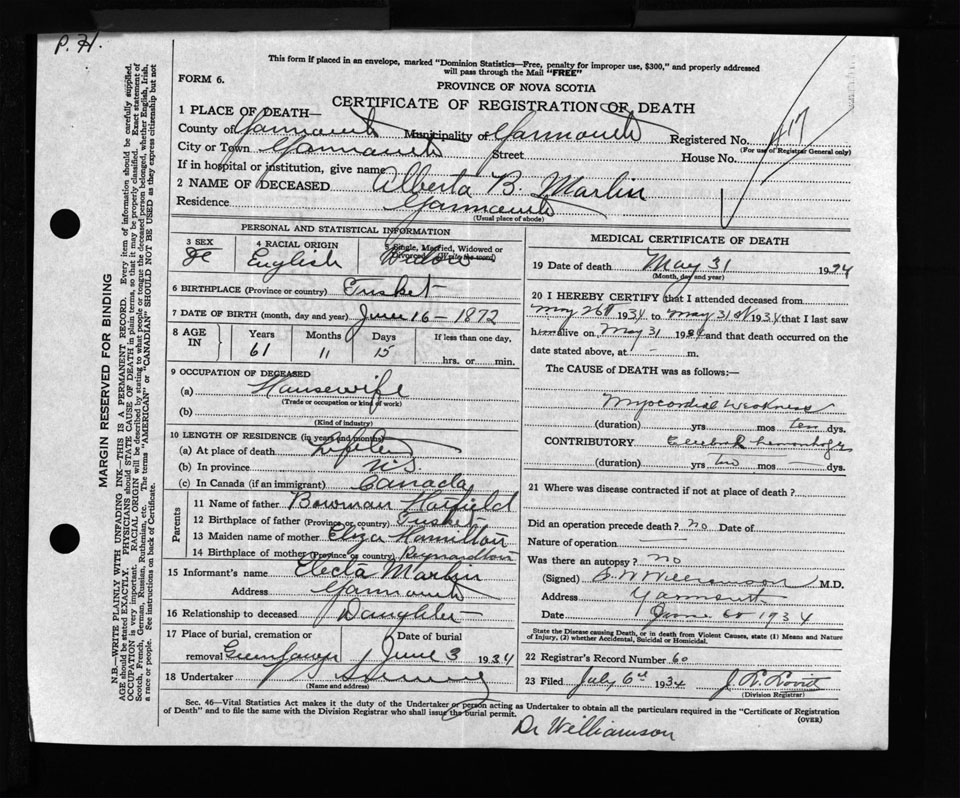 P. 71.
This form if placed in an envelope, marked "Dominion Statistics—Free, penalty for improper use, $300," and properly addressed
will pass through the Mail "FREE"
FORM 6.
PROVINCE OF NOVA SCOTIA
CERTIFICATE OF REGISTRATION OF DEATH
1 PLACE OF DEATH—
County of Yarmouth Municipality of Yarmouth Registered No. 417
(For use of Registrar General only)
City or Town Yarmouth Street House No.
If in hospital or institution, give name
2 NAME OF DECEASED Alberta B. Marlin
Residence Yarmouth
(Usual place of abode)
MARGIN RESERVED FOR BINDING
N.B.—WRITE PLAINLY WITH UNFADING INK—THIS IS A PERMANENT RECORD. Every item of information should be carefully supplied.
AGE should be stated EXACTLY. PHYSICIANS should STATE CAUSE OF DEATH in plain terms, so that it may be properly classified. Exact statement of
OCCUPATION is very important. RACIAL ORIGIN will be described by stating to what people or tongue the deceased person belonged, whether English, Irish,
Scotch, French, German, Russian, Ruthenian, etc. The terms "AMERICAN" or "CANADIAN" SHOULD NOT BE USED as they express citizenship but not
a race or people. See instructions on back of Certificate.
PERSONAL AND STATISTICAL INFORMATION
3 SEX 4 RACIAL ORIGIN 5 Single, Married, Widowed or
Divorced (Write the word)
English Widow
6 BIRTHPLACE (Province or country) Tusket
7 DATE OF BIRTH (month, day and year) June 16 – 1872
8 AGE IN Years Months Days If less than one day,
61 11 15 hrs. or min.
9 OCCUPATION OF DECEASED
(a) Housewife
(Trade or occupation or kind of work)
(b)
(Kind of industry)
10 LENGTH OF RESIDENCE (in years and months)
(a) At place of death Lifetime
(b) In province N.S.
(c) In Canada (if an immigrant) Canada
Parents
11 Name of father Bowman Hatfield
12 Birthplace of father (Province or country) Tusket
13 Maiden name of mother Eliza Hamilton
14 Birthplace of mother (Province or country) Raynardton
15 Informant's name Electa Marlin
Address Yarmouth
16 Relationship to deceased Daughter
17 Place of burial, cremation or Date of burial
removal June 3 1934
18 Undertaker
(Name and address)
MEDICAL CERTIFICATE OF DEATH
19 Date of death May 31 1934
(Month, day and year)
20 I HEREBY CERTIFY that I attended deceased from
May 26 1934 to May 31 1934 that I last saw
h alive on May 31 1934 and that death occurred on the
date stated above, at — m.
The CAUSE of DEATH was as follows:—
Myocardial Weakness
(duration) yrs mos ten dys.
CONTRIBUTORY Cerebral hemorrhage
(duration) yrs two mos — dys.
21 Where was disease contracted if not at place of death?
Did an operation precede death? no Date of
Nature of operation —
Was there an autopsy? no
(Signed) Williamson M.D.
Address Yarmouth
Date June 1934
State the Disease causing Death, or in death from Violent Causes, state (1) Means and Nature
of Injury, (2) whether Accidental, Suicidal or Homicidal.
22 Registrar's Record Number 60
23 Filed July 6th 1934 Lovitt
(Division Registrar)
Sec. 46—Vital Statistics Act makes it the duty of the Undertaker or person acting as Undertaker to obtain all the particulars required in the "Certificate of Registration
of Death" and to file the same with the Division Registrar who shall issue the burial permit.
(OVER)
Dr Williamson